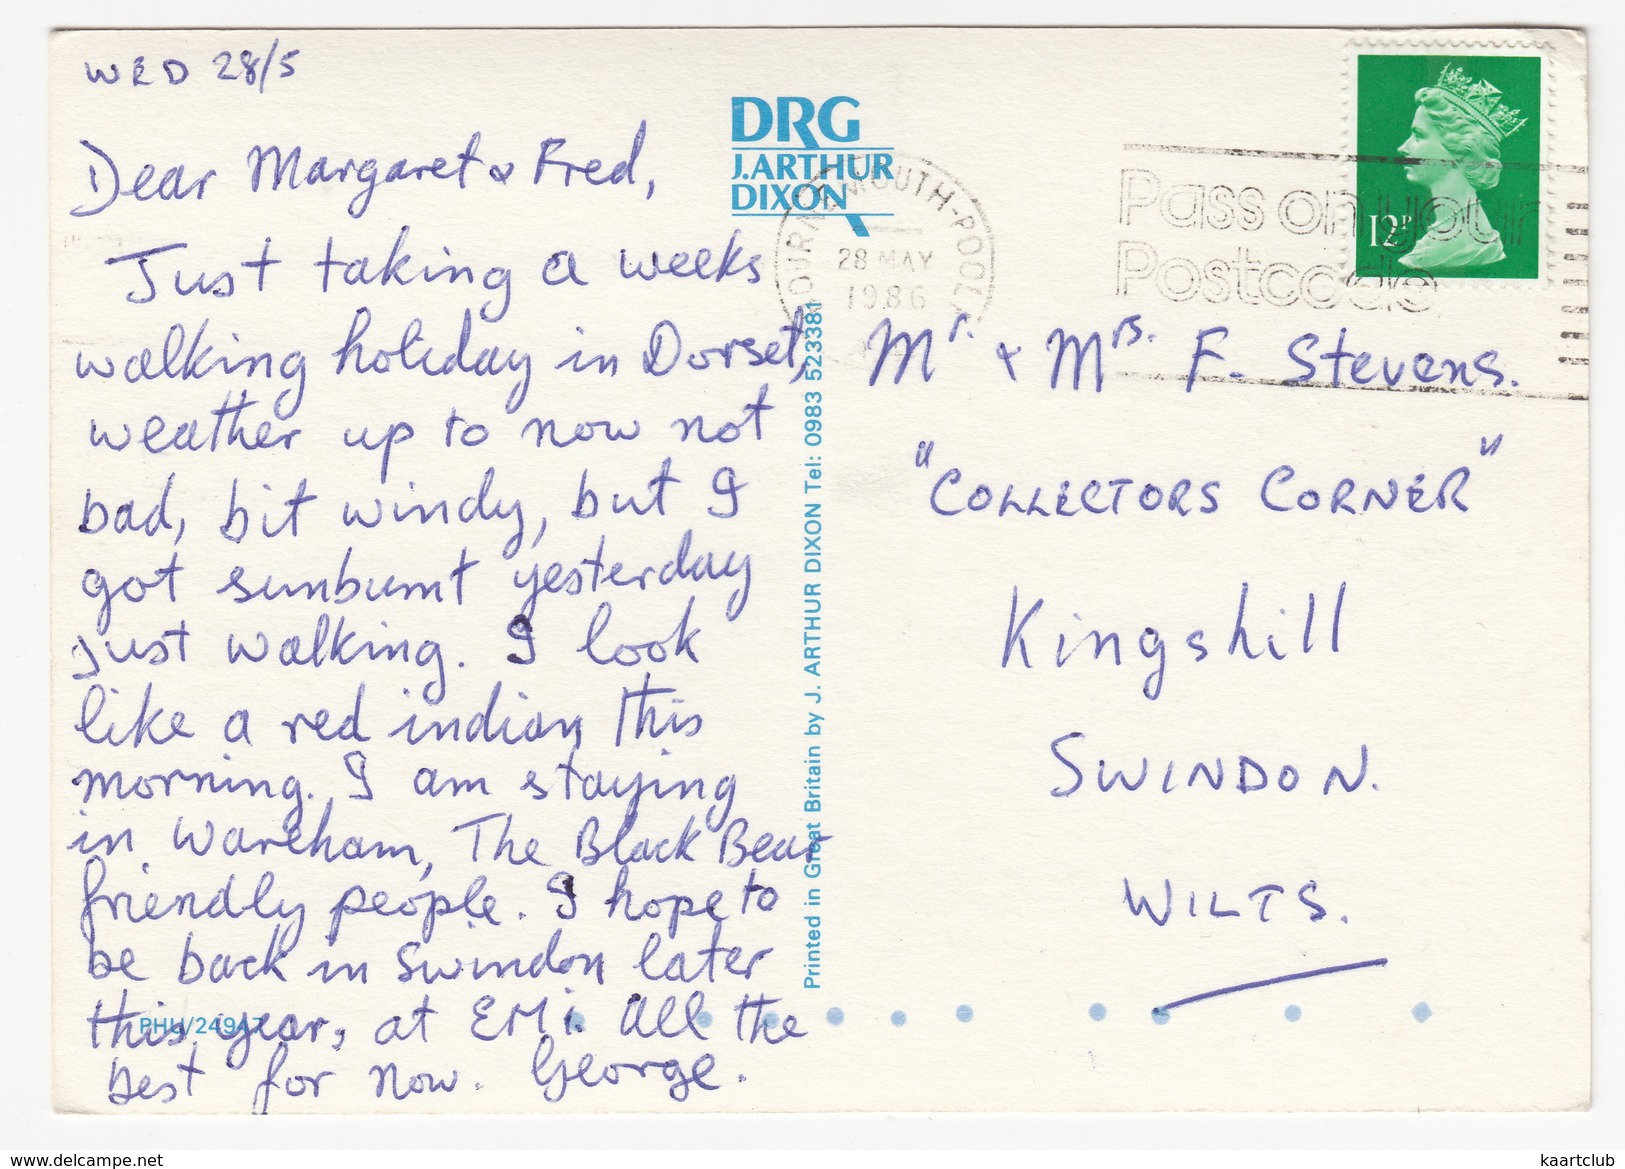 WED 28/5
Dear Margaret & Fred,
Just taking a weeks
walking holiday in Dorset,
weather up to now not
bad, bit windy, but I
got sunburnt yesterday
just walking. I look
like a red indian this
morning. I am staying
in Wareham, The Black Bear
friendly people. I hope to
be back in Swindon later
this year, at EMI. All the
best for now. George.
PHU/24947
DRG
J.ARTHUR
DIXON
Printed in Great Britain by J. ARTHUR DIXON Tel: 0983 523381
BOURNEMOUTH-POOLE
28 MAY
1986
Pass on your
Postcode
12P
Mr. & Mrs. F. Stevens.
"COLLECTORS CORNER"
Kingshill
SWINDON.
WILTS.
www.delcampe.net
kaartclub